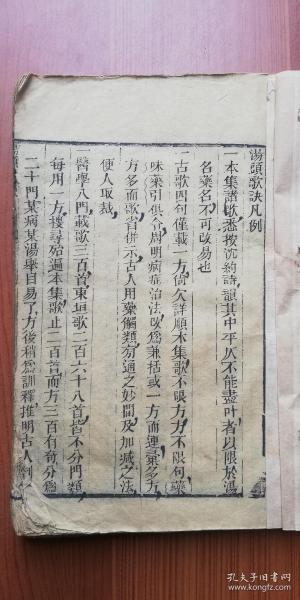 湯頭歌訣凡例
一本集諸歌悉按沈約詩韻其中平仄不能盡叶者以限於湯
名藥名不可改易也
一古歌四句僅載一方尚欠詳順本集歌不限方方不限句藥
味藥引俱令周明病症治法改爲兼括或一方而連彙多方
方多而歌省併示古人用藥觸類旁通之妙間及加減之法
便人取裁
一醫學入門載歌三百首東垣歌二百六十八首皆不分門類
每用一方搜尋殆遍本集歌止二百首而方三百有奇分爲
二十門某病某湯舉目易了方後稍爲訓釋推明古人制
孔夫子旧书网